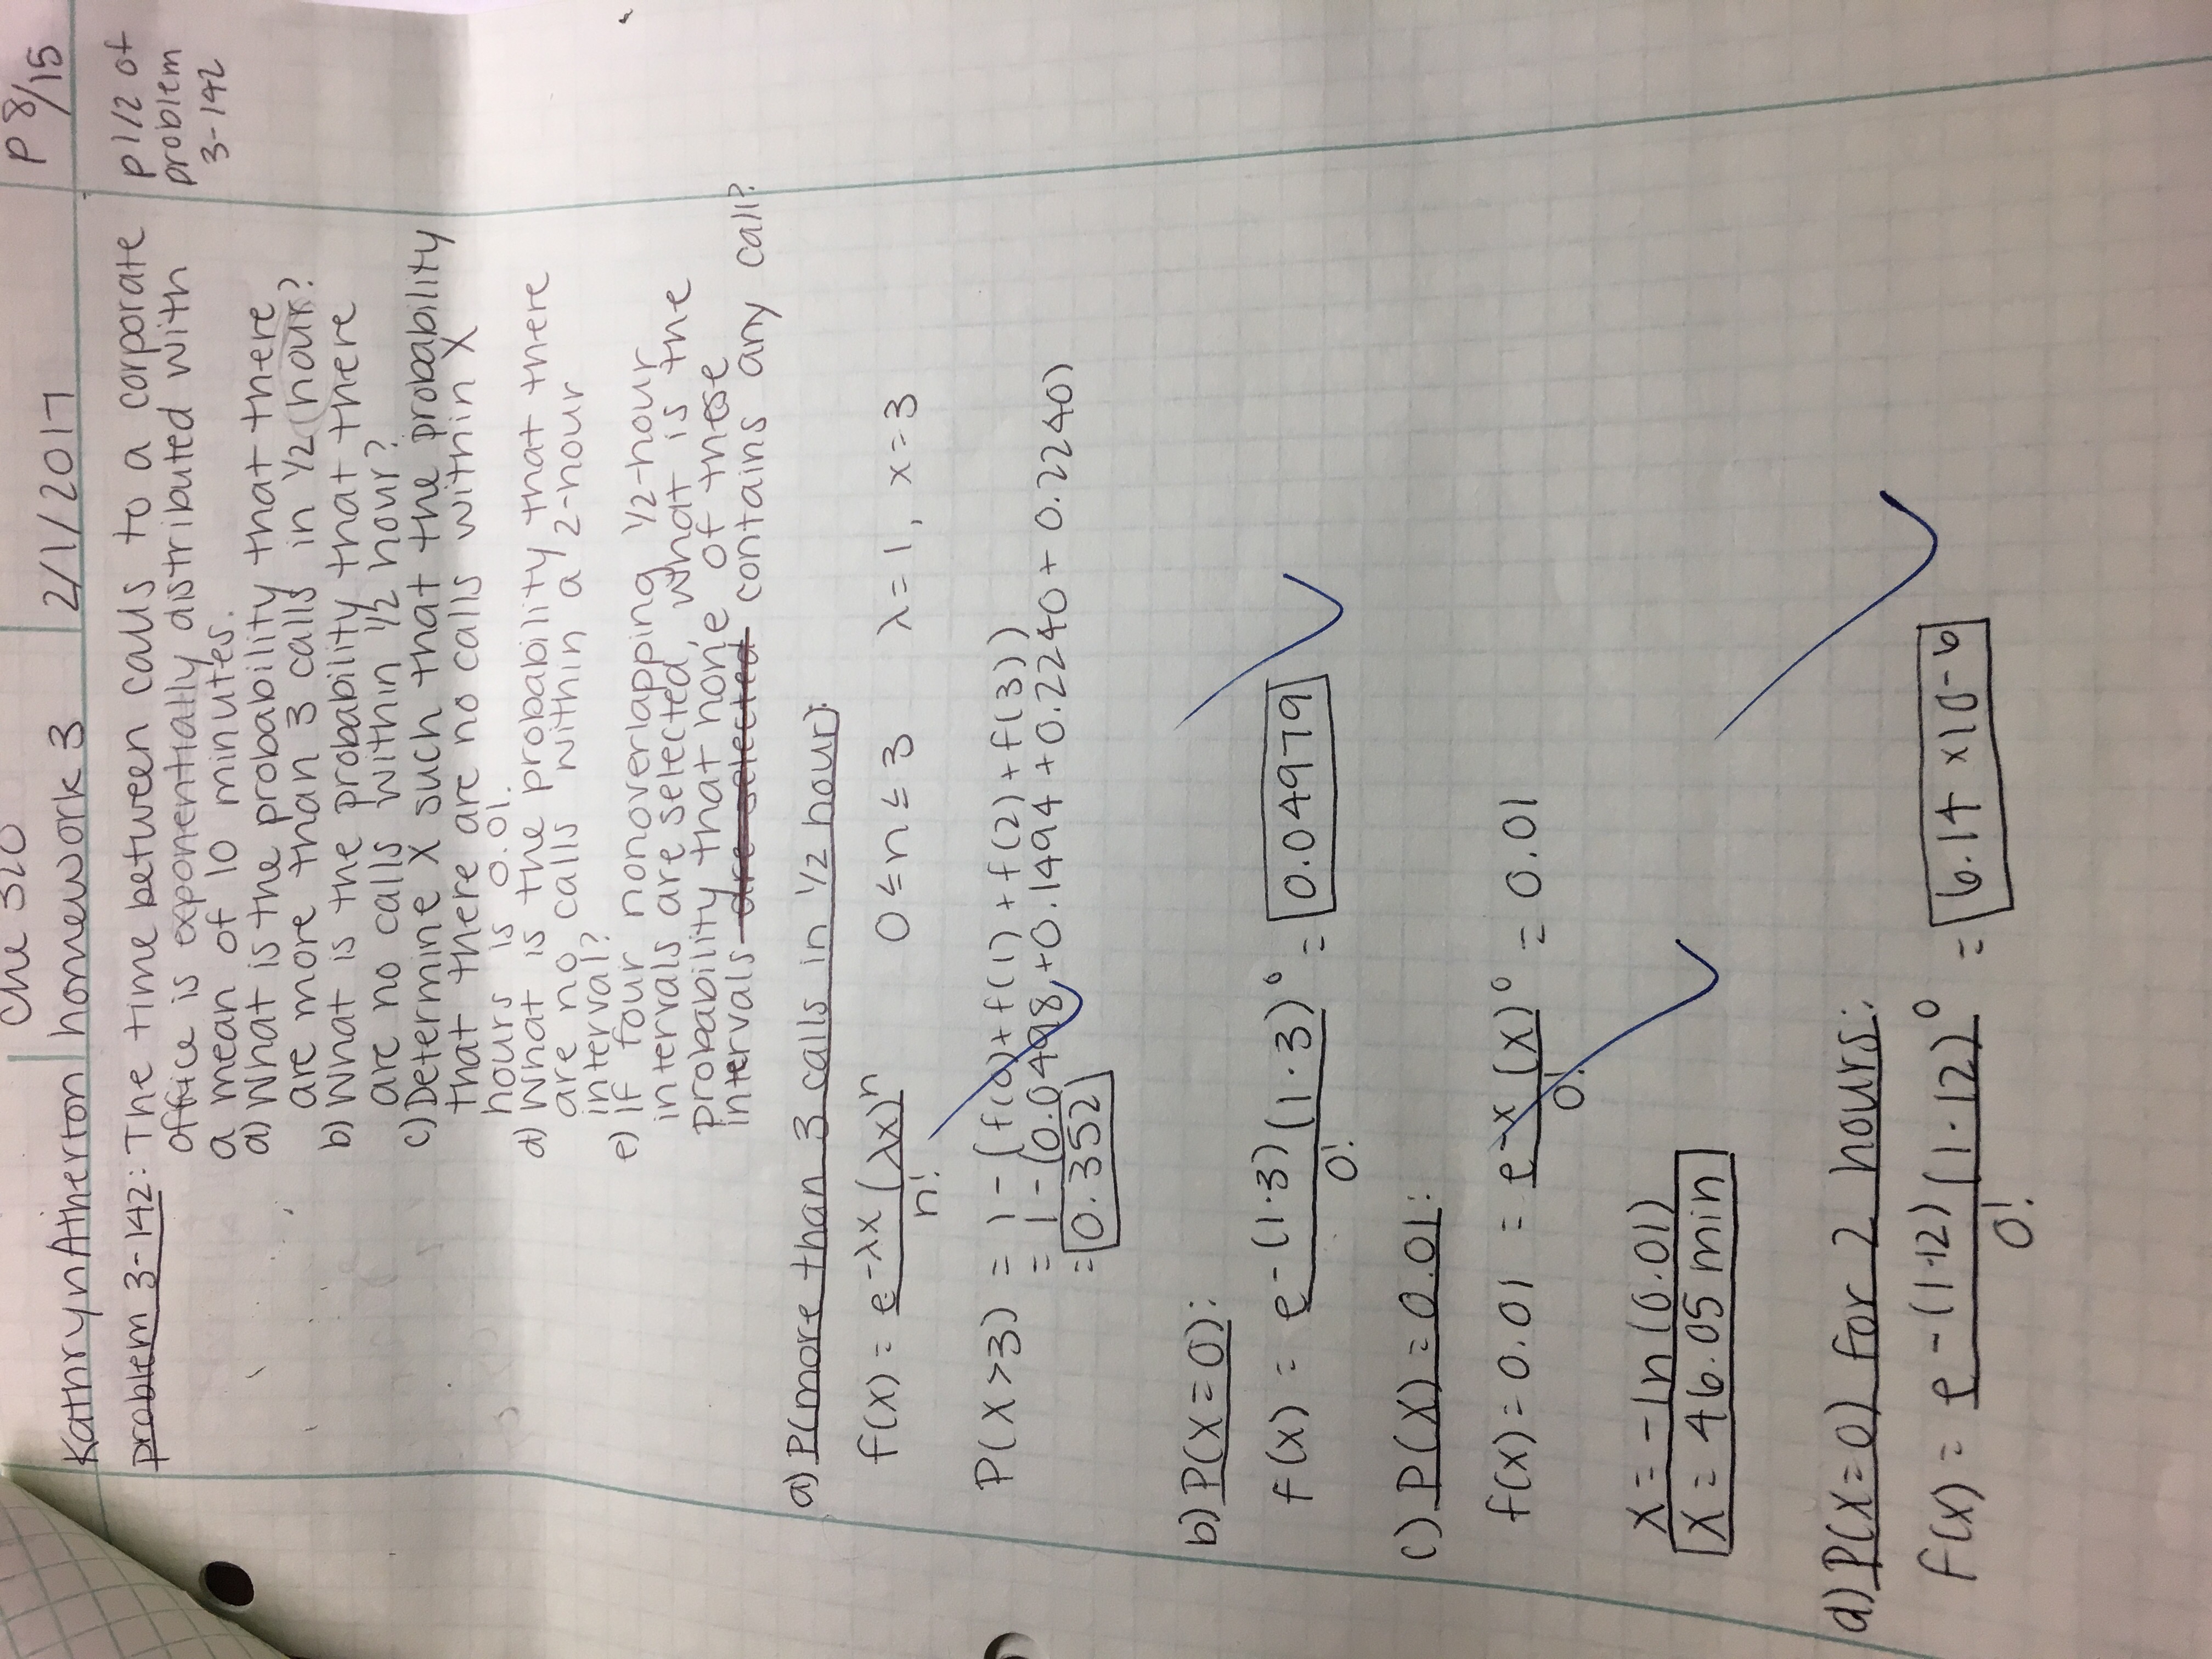 Che 320
Kathryn Atherton homework 3 2/1/2017 P 8/15
problem 3-142: The time between calls to a corporate
office is exponentially distributed with
a mean of 10 minutes.
p1/2 of
problem
3-142
a) What is the probability that there
are more than 3 calls in 1/2 hour?
b) What is the probability that there
are no calls within 1/2 hour?
c) Determine X such that the probability
that there are no calls within X
hours is 0.01.
d) What is the probability that there
are no calls within a 2-hour
interval?
e) If four nonoverlapping 1/2-hour
intervals are selected, what is the
probability that none of these
intervals are selected contains any call?
a) P(more than 3 calls in 1/2 hour):
f(X) = e^-λx (λx)^n / n! 0 ≤ n ≤ 3 λ = 1, x = 3
P(X>3) = 1 - (f(0) + f(1) + f(2) + f(3))
= 1 - (0.0498 + 0.1494 + 0.2240 + 0.2240)
= 0.352
b) P(X = 0):
f(x) = e^-(1·3) (1·3)^0 / 0! = 0.04979
c) P(X) = 0.01:
f(x) = 0.01 = e^-x (x)^0 / 0! = 0.01
X = -ln(0.01)
X = 46.05 min
d) P(X=0) for 2 hours:
f(x) = e^-(1·12) (1·12)^0 / 0! = 6.14 x10^-6